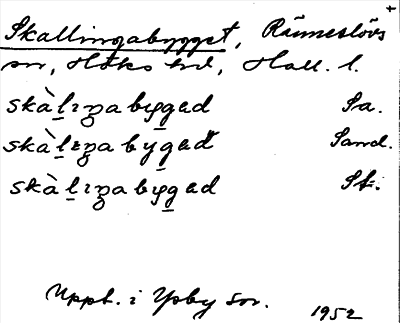 Skallingabygget, Ränneslövs
sn, Höks hd, Hall. l.
skàlıŋabygəd Sa.
skàlıŋabygəd Sand.
skàlıŋabygəd St.
Uppt. i Ysby sn. 1952